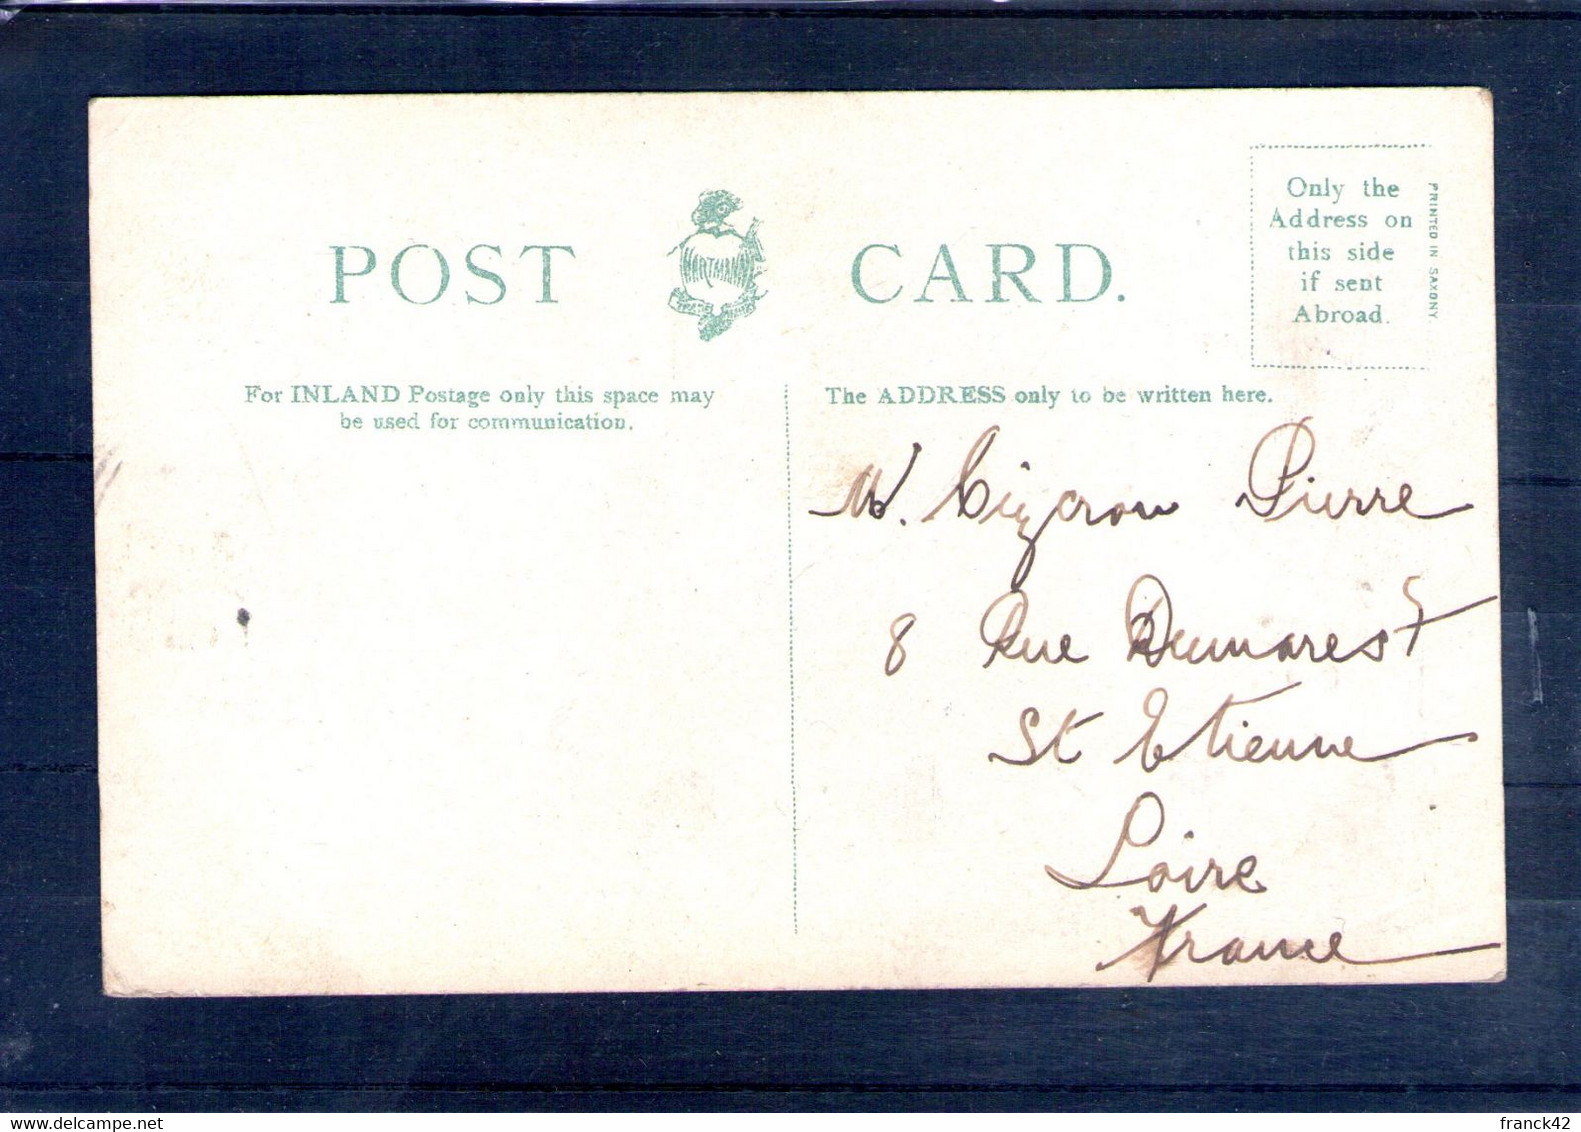 POST CARD.
HARTMANN
Only the
Address on
this side
if sent
Abroad.
PRINTED IN SAXONY.
For INLAND Postage only this space may
be used for communication.
The ADDRESS only to be written here.
Pierre
8 Rue Dumarest
St Etienne
Loire
France
www.delcampe.net
franck42